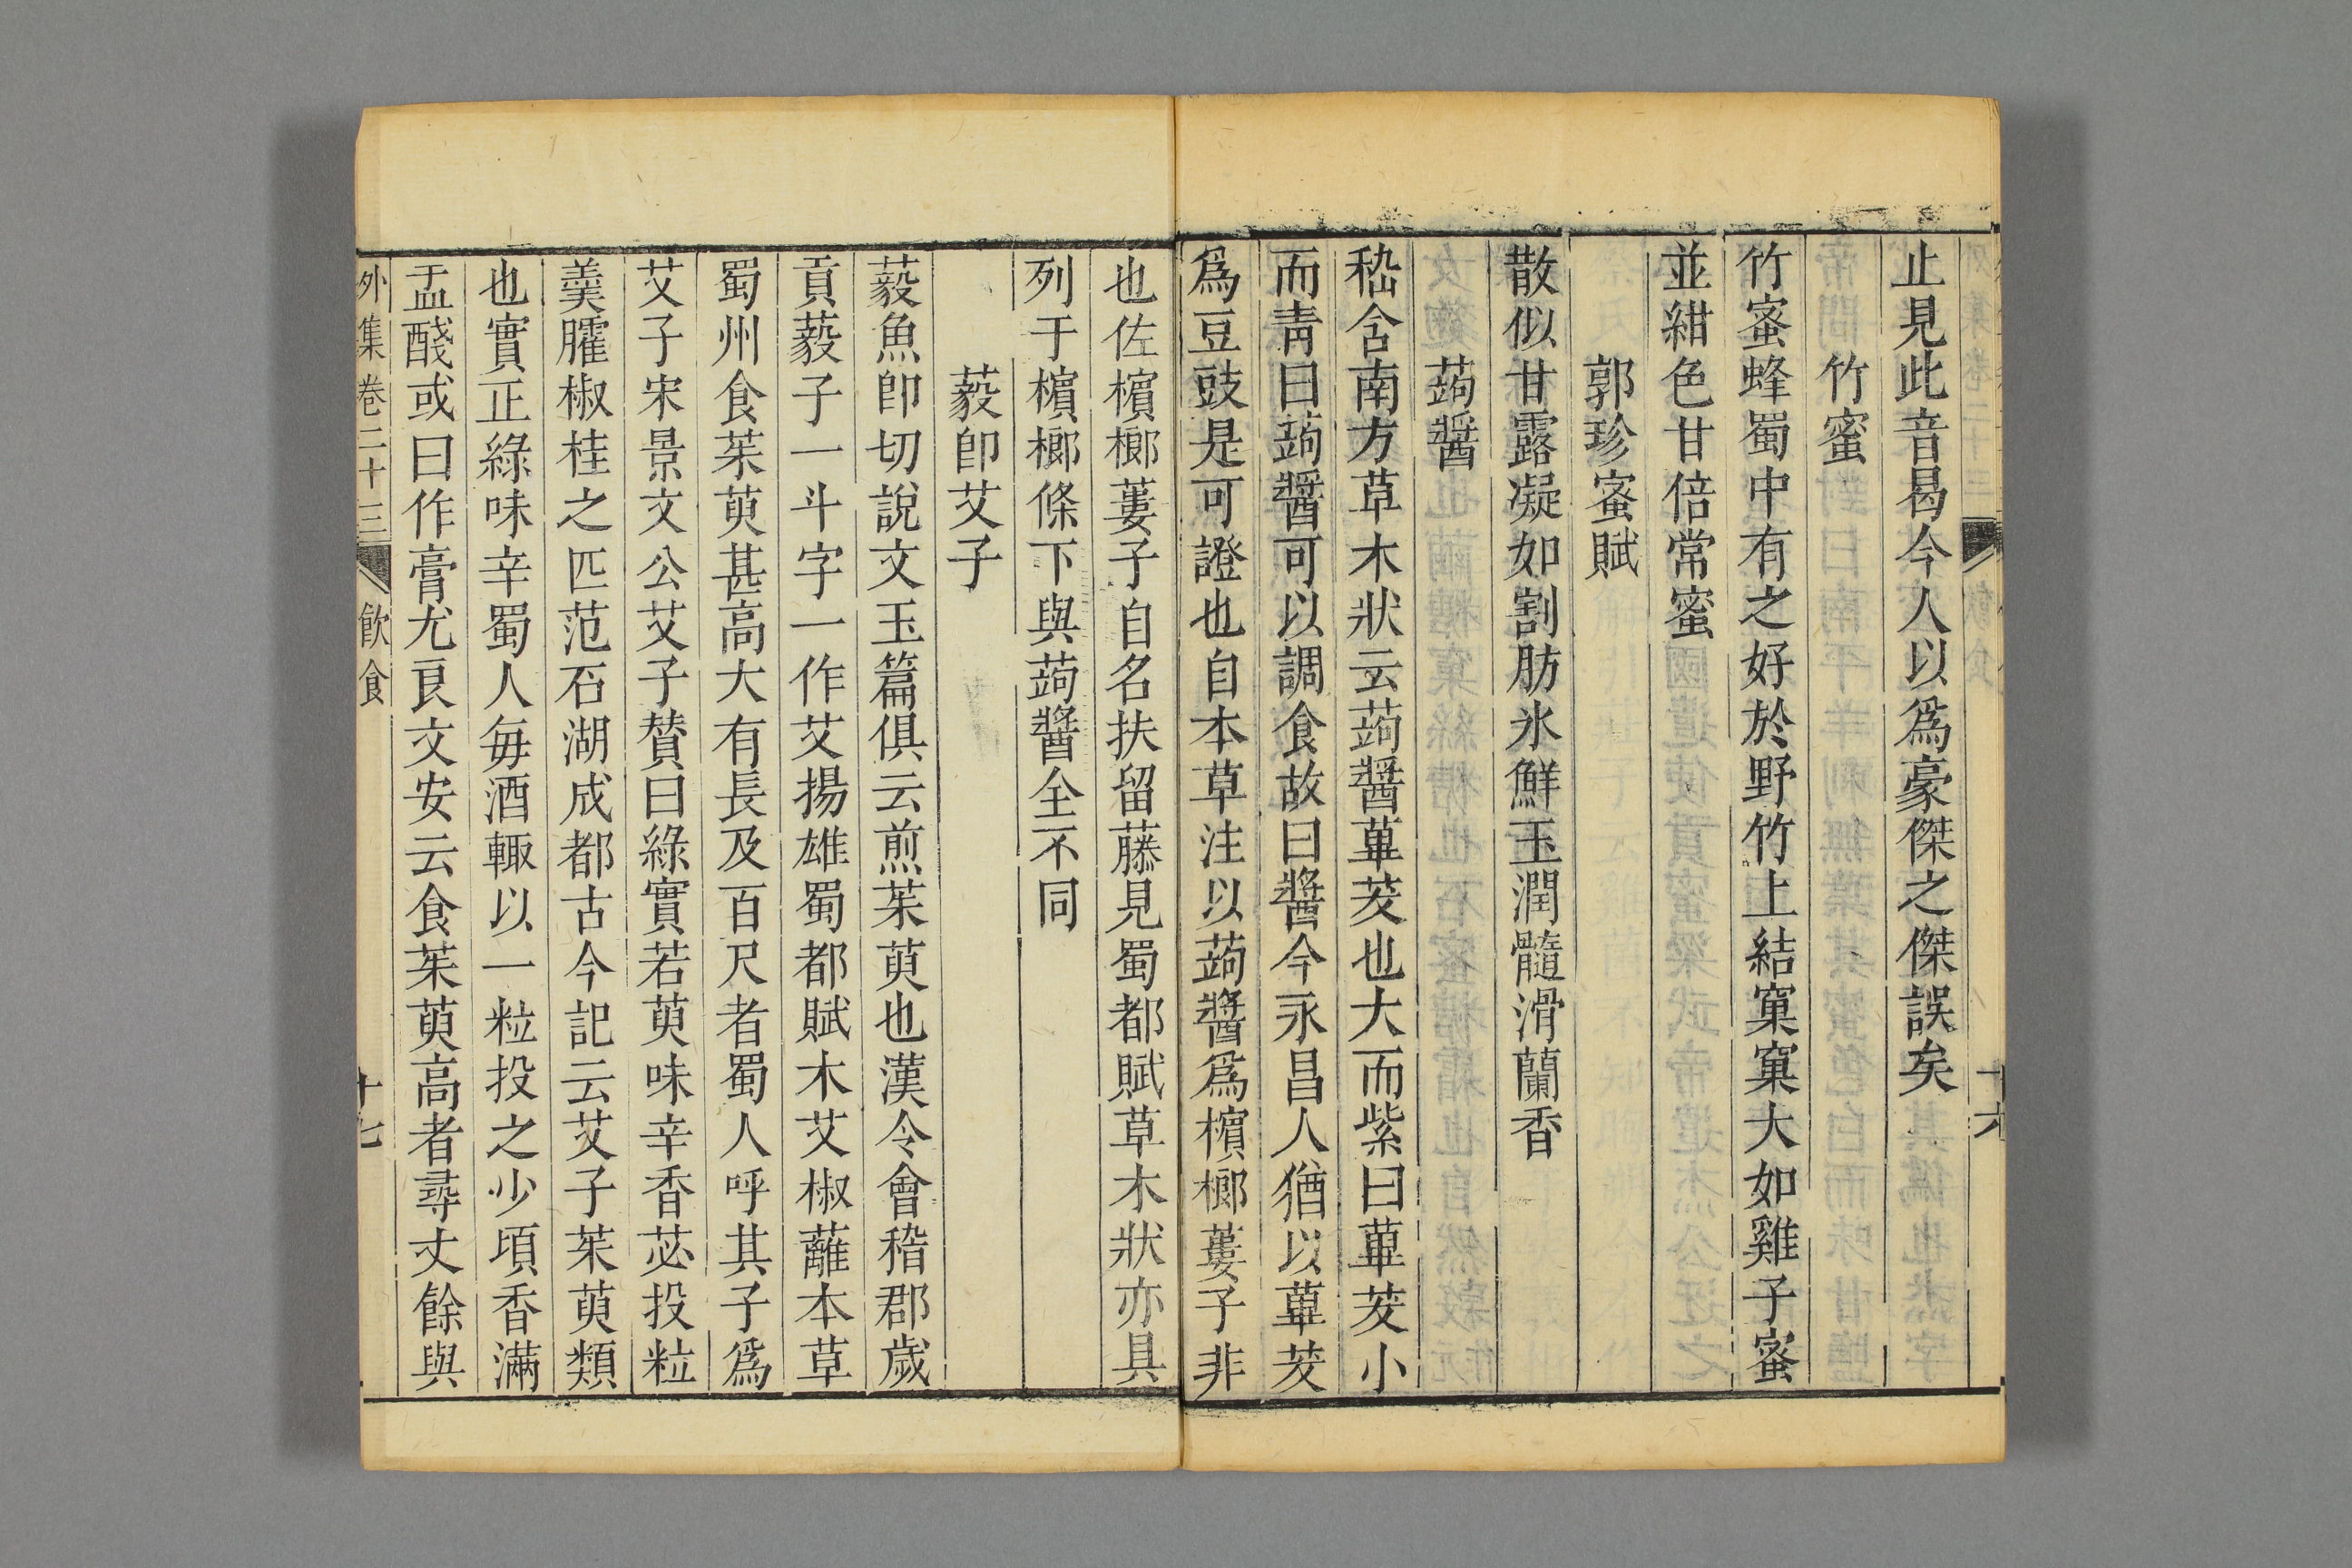 止見此音曷今人以爲豪傑之傑誤矣
竹蜜
竹蜜蜂蜀中有之好於野竹上結窠窠大如雞子蜜
並紺色甘倍常蜜
郭珍蜜賦
散似甘露凝如割肪氷鮮玉潤髓滑蘭香
蒟醬
嵇含南方草木狀云蒟醬蓽茇也大而紫曰蓽茇小
而青曰蒟醬可以調食故曰醬今永昌人猶以蓽茇
爲豆豉是可證也自本草注以蒟醬爲檳榔蔞子非
十六
也佐檳榔蔞子自名扶留藤見蜀都賦草木狀亦具
列于檳榔條下與蒟醬全不同
藙卽艾子
藙魚卽切說文玉篇俱云煎茱萸也漢令會稽郡歲
貢藙子一斗字一作艾揚雄蜀都賦木艾椒蘺本草
蜀州食茱萸甚高大有長及百尺者蜀人呼其子爲
艾子宋景文公艾子賛曰綠實若萸味辛香苾投粒
羹臛椒桂之匹范石湖成都古今記云艾子茱萸類
也實正綠味辛蜀人每酒輙以一粒投之少頃香滿
盂醆或曰作膏尤良文安云食茱萸高者尋丈餘與
外集卷二十三 飲食 十七